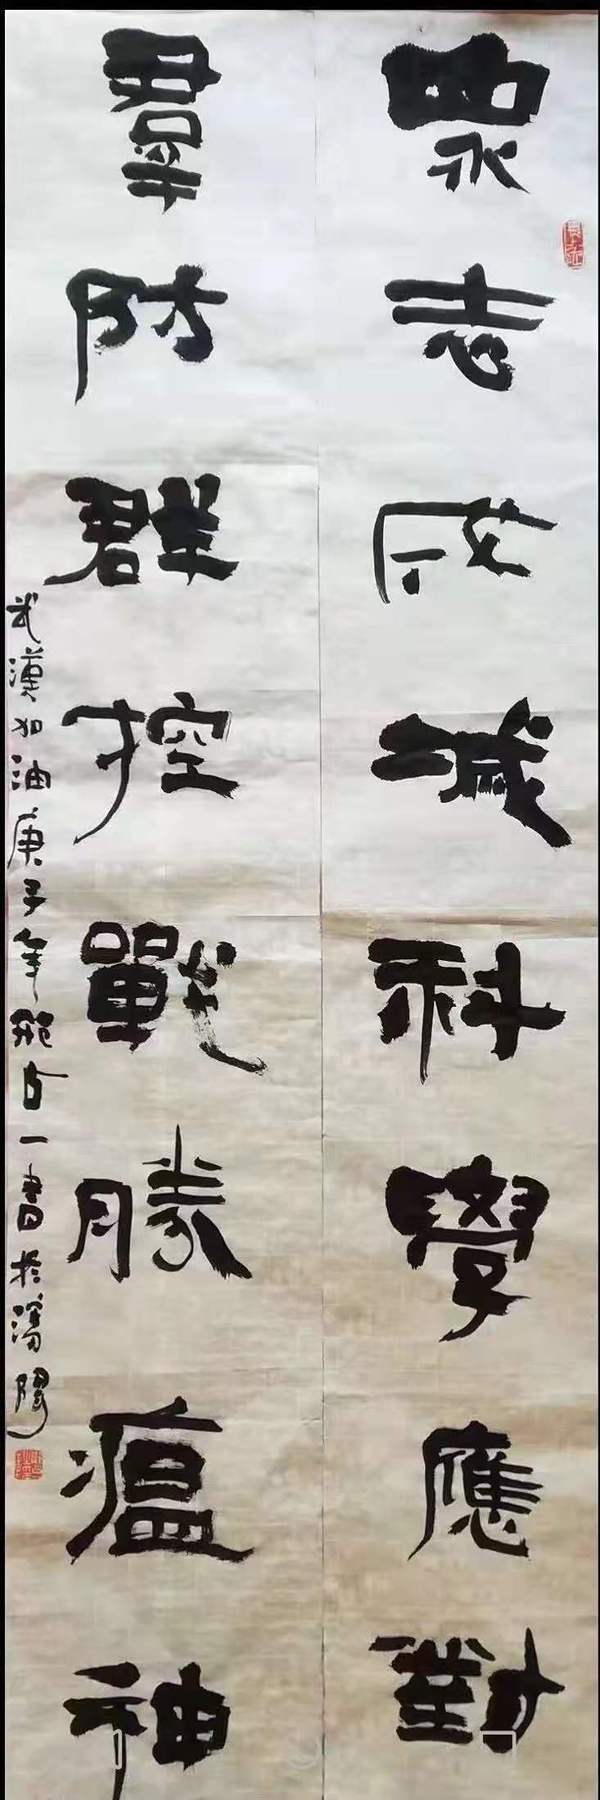 眾志成城科學應對
羣防群控戰勝瘟神
武漢加油庚子年苑占一書於瀋陽